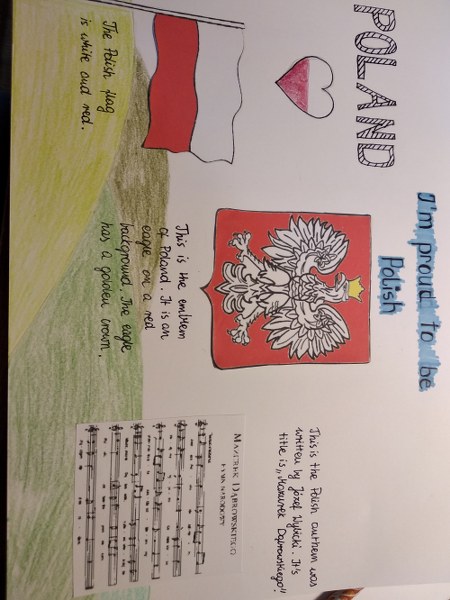 POLAND
I'm proud to be
Polish
The Polish flag
is white and red.
This is the emblem
of Poland. It is an
eagle on a red
background. The eagle
has a golden crown.
This is the Polish anthem was
written by Józef Wybicki. It's
title is „Mazurek Dąbrowskiego".
MAZUREK DĄBROWSKIEGO
HYMN NARODOWY